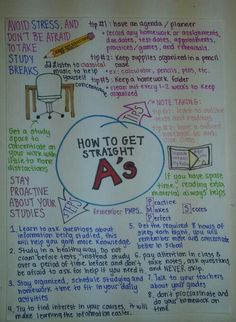 AVOID STRESS, AND
DON'T BE AFRAID
TO TAKE
STUDY
BREAKS
tip #1: have an agenda / planner
• record any homework or assignments,
due dates, test dates, appointments,
practices/games, and rehearsals.
tip #2: keep supplies organized in a pencil
case
• ex: calculator, pencils, pens, etc.
tip #3: have a homework folder
• clean out every 1-2 weeks to keep
organized
listen to classical
music to help
you
concentrate
NOTE TAKING:
Get a study
space to
concentrate on
your work with
little to more
distractions
HOW TO GET
STRAIGHT
A's
If you have spare
time, reading extra
material always
helps!
STAY
PROACTIVE
ABOUT YOUR
STUDIES
TIPS
Remember PMPS...
Practice
Makes
Perfect
Scores
1. Learn to ask questions about
information being studied, this
will help you gain more knowledge.
2. Study in a healthy way, do not
cram before tests, instead study
over a period of time before and don't
be afraid to ask for help if you need it
3. Stay organized, schedule studying and
homework time to fit in your daily
activities
4. Try to find interest in your courses, it will make
learning the information easier.
5. Get the required 8 hours of
sleep each night, you will
remember more and concentrate
better in school
6. pay attention in class &
take notes, ask questions
and NEVER skip.
7. Talk to your teachers
about your grades
8. don't procrastinate and
do your homework on
time